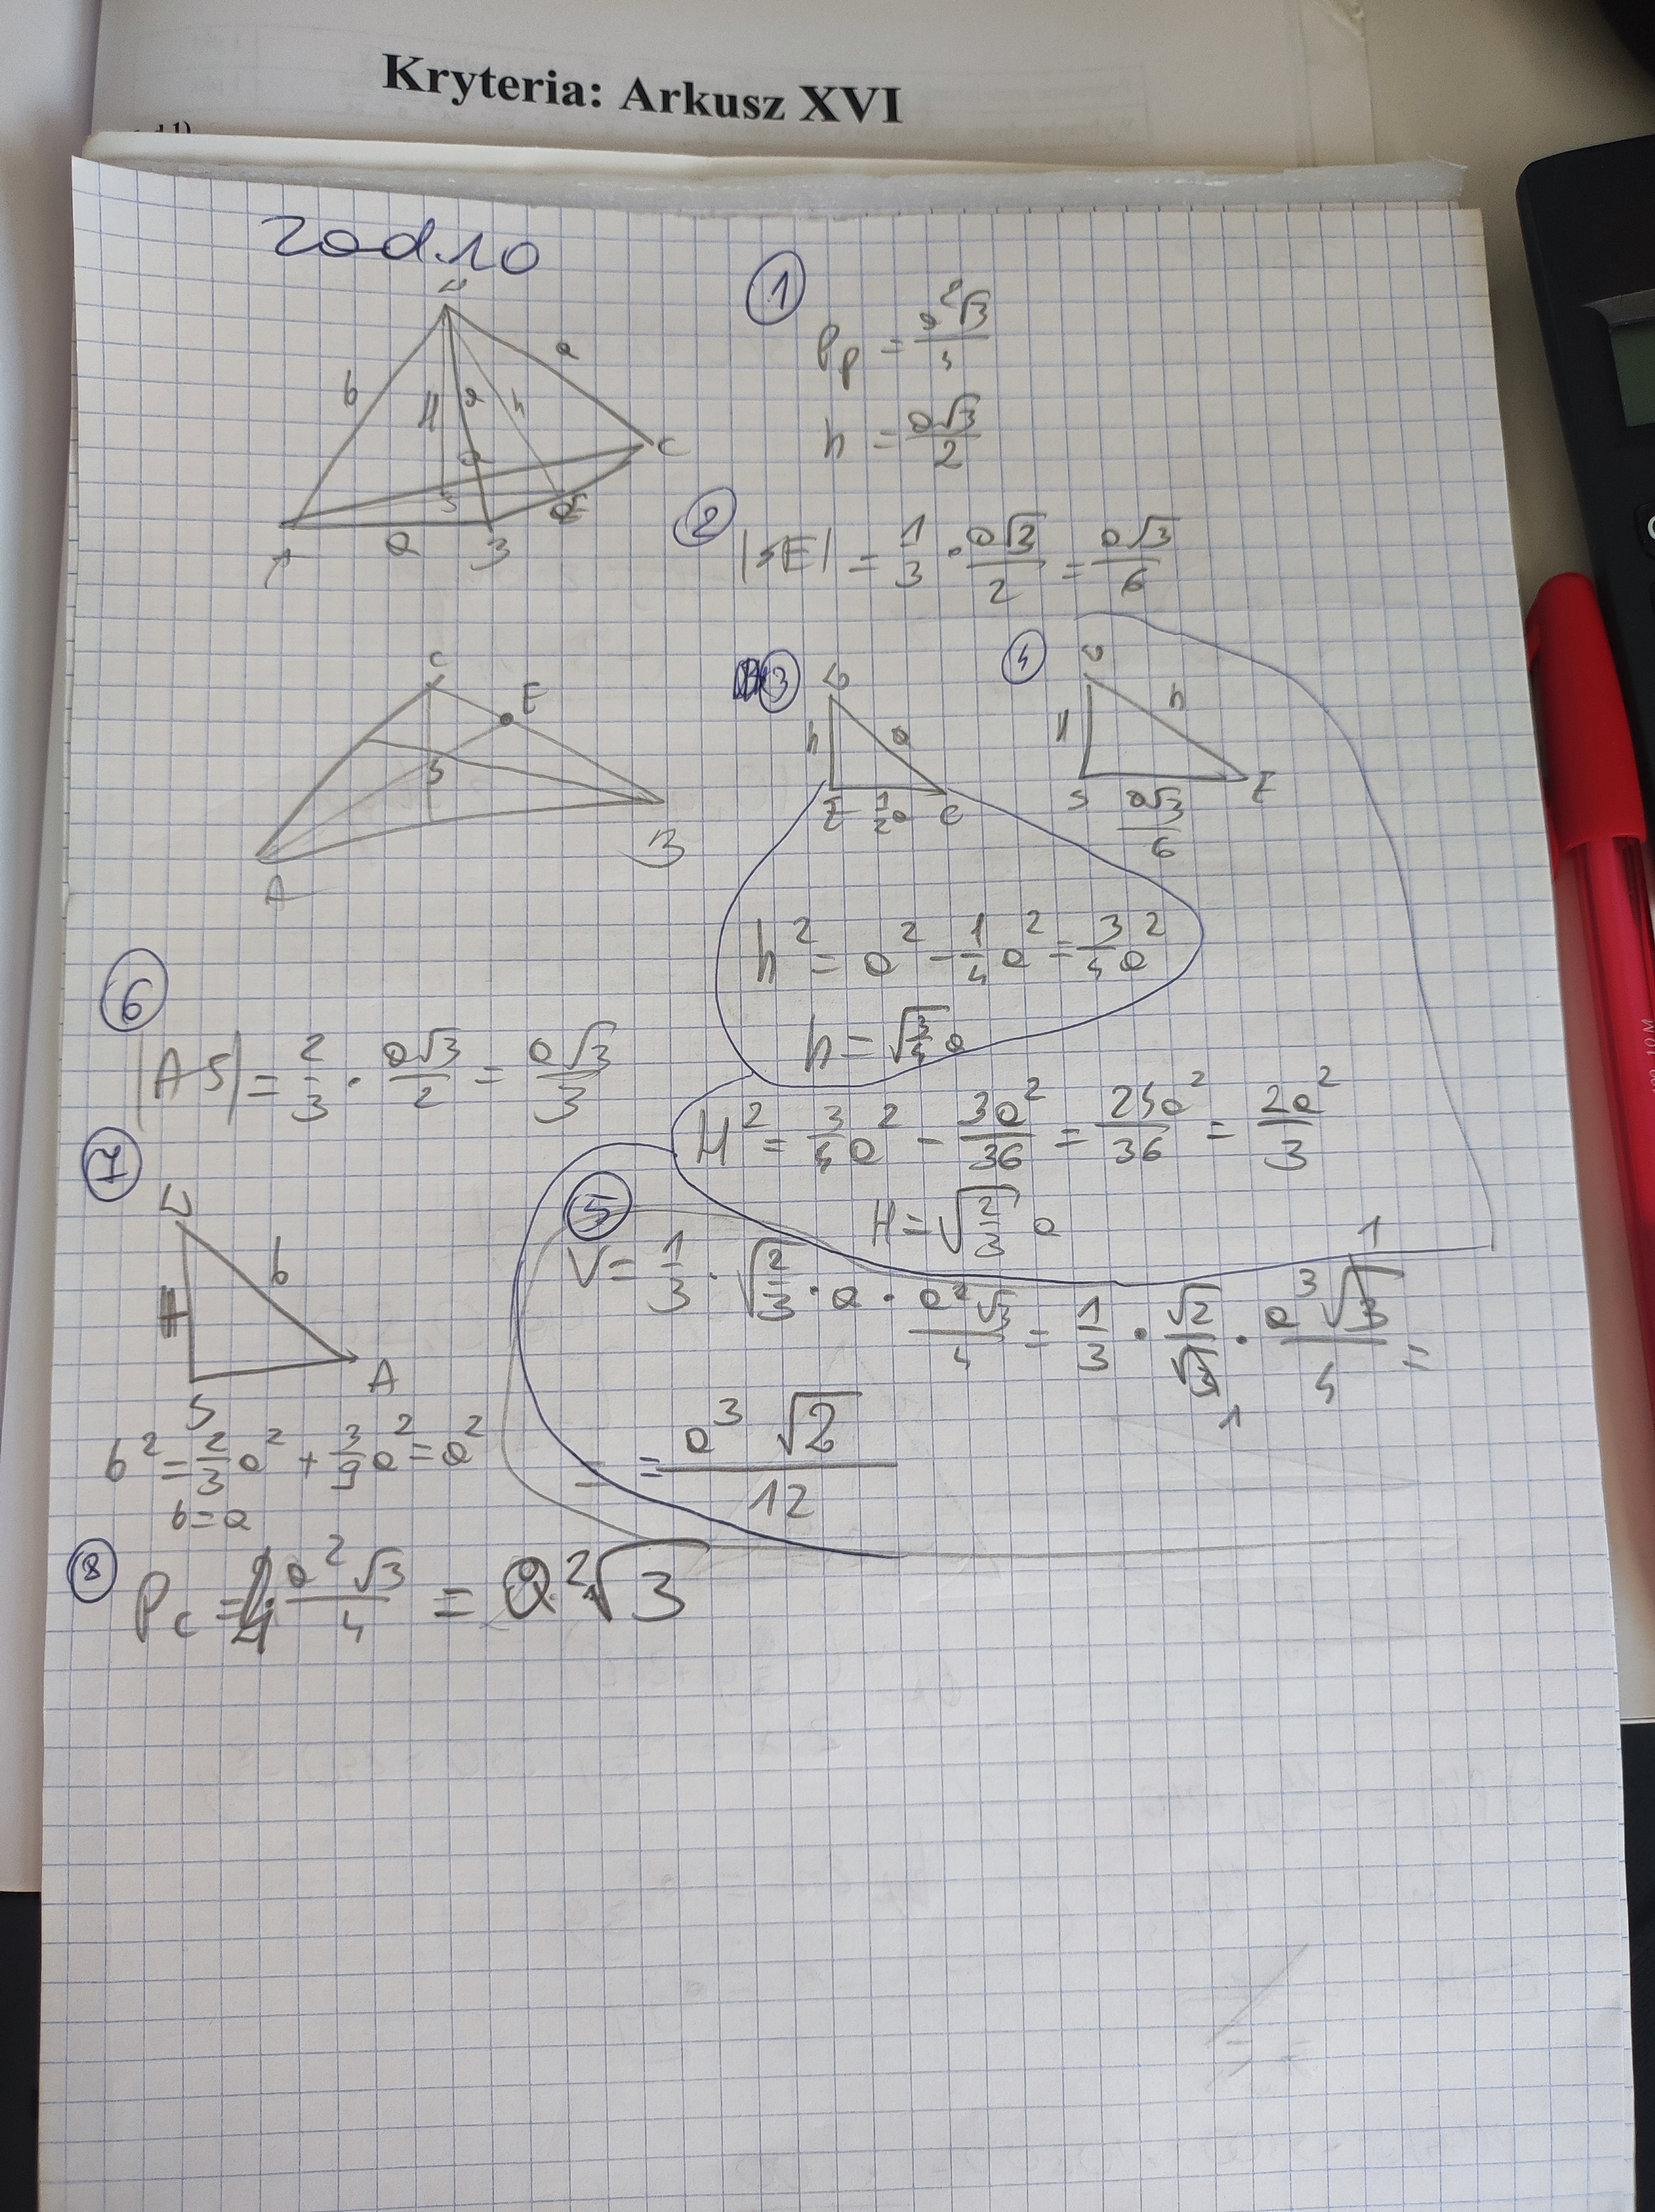 Kryteria: Arkusz XVI
zad.10
①
Pp = a²√3/4
h = a√3/2
b H a h a
a S E C
A a B
②
|SE| = 1/3 · a√3/2 = a√3/6
C E
S
A B
③
h a
E 1/2a C
④
H h
S a√3/6 E
h² = a² - 1/4 a² = 3/4 a²
h = √(3/4) a
H² = 3/4 a² - 3a²/36 = 24a²/36 = 2a²/3
H = √(2/3) a
⑤
V = 1/3 · √(2/3) · a · a²√3/4 = 1/3 · √2/√3 · a³√3/4 =
1
1
= = a³√2/12
⑥
|AS| = 2/3 · a√3/2 = a√3/3
⑦
b
S A
b² = 2/3 a² + 3/9 a² = a²
b = a
⑧
Pc = 4 a²√3/4 = a²√3